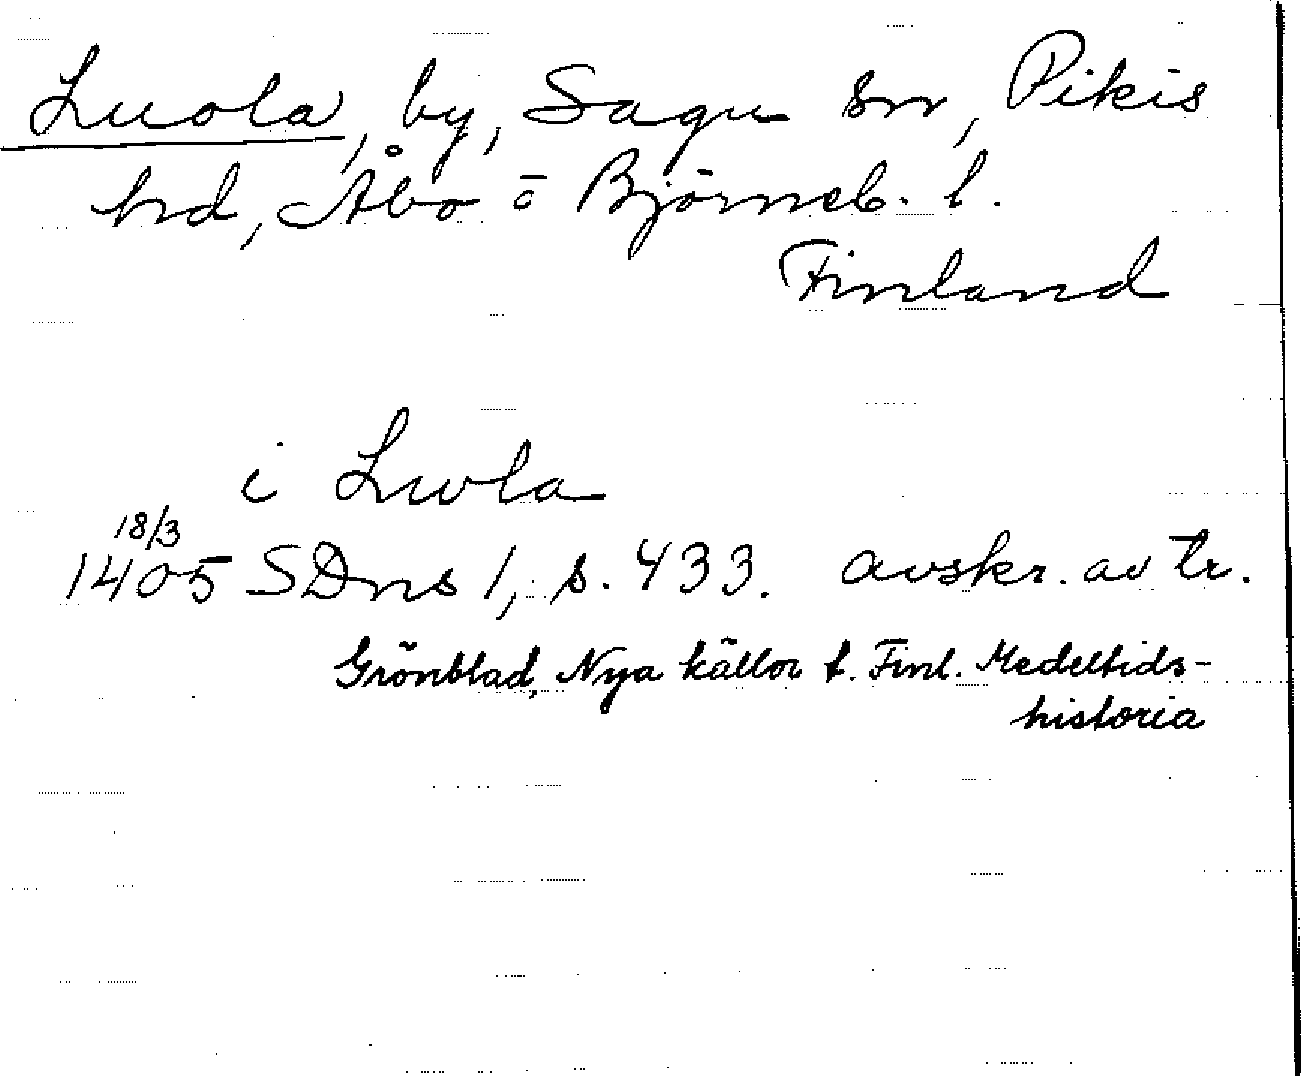 Luola, by, Sagu sn, Pikis
hd, Åbo o Björneb. l.
Finland
i Lwla
18/3
1405 SDns 1, s. 433. avskr. av tr.
Grönblad, Nya källor t. Finl. Medeltids-
historia